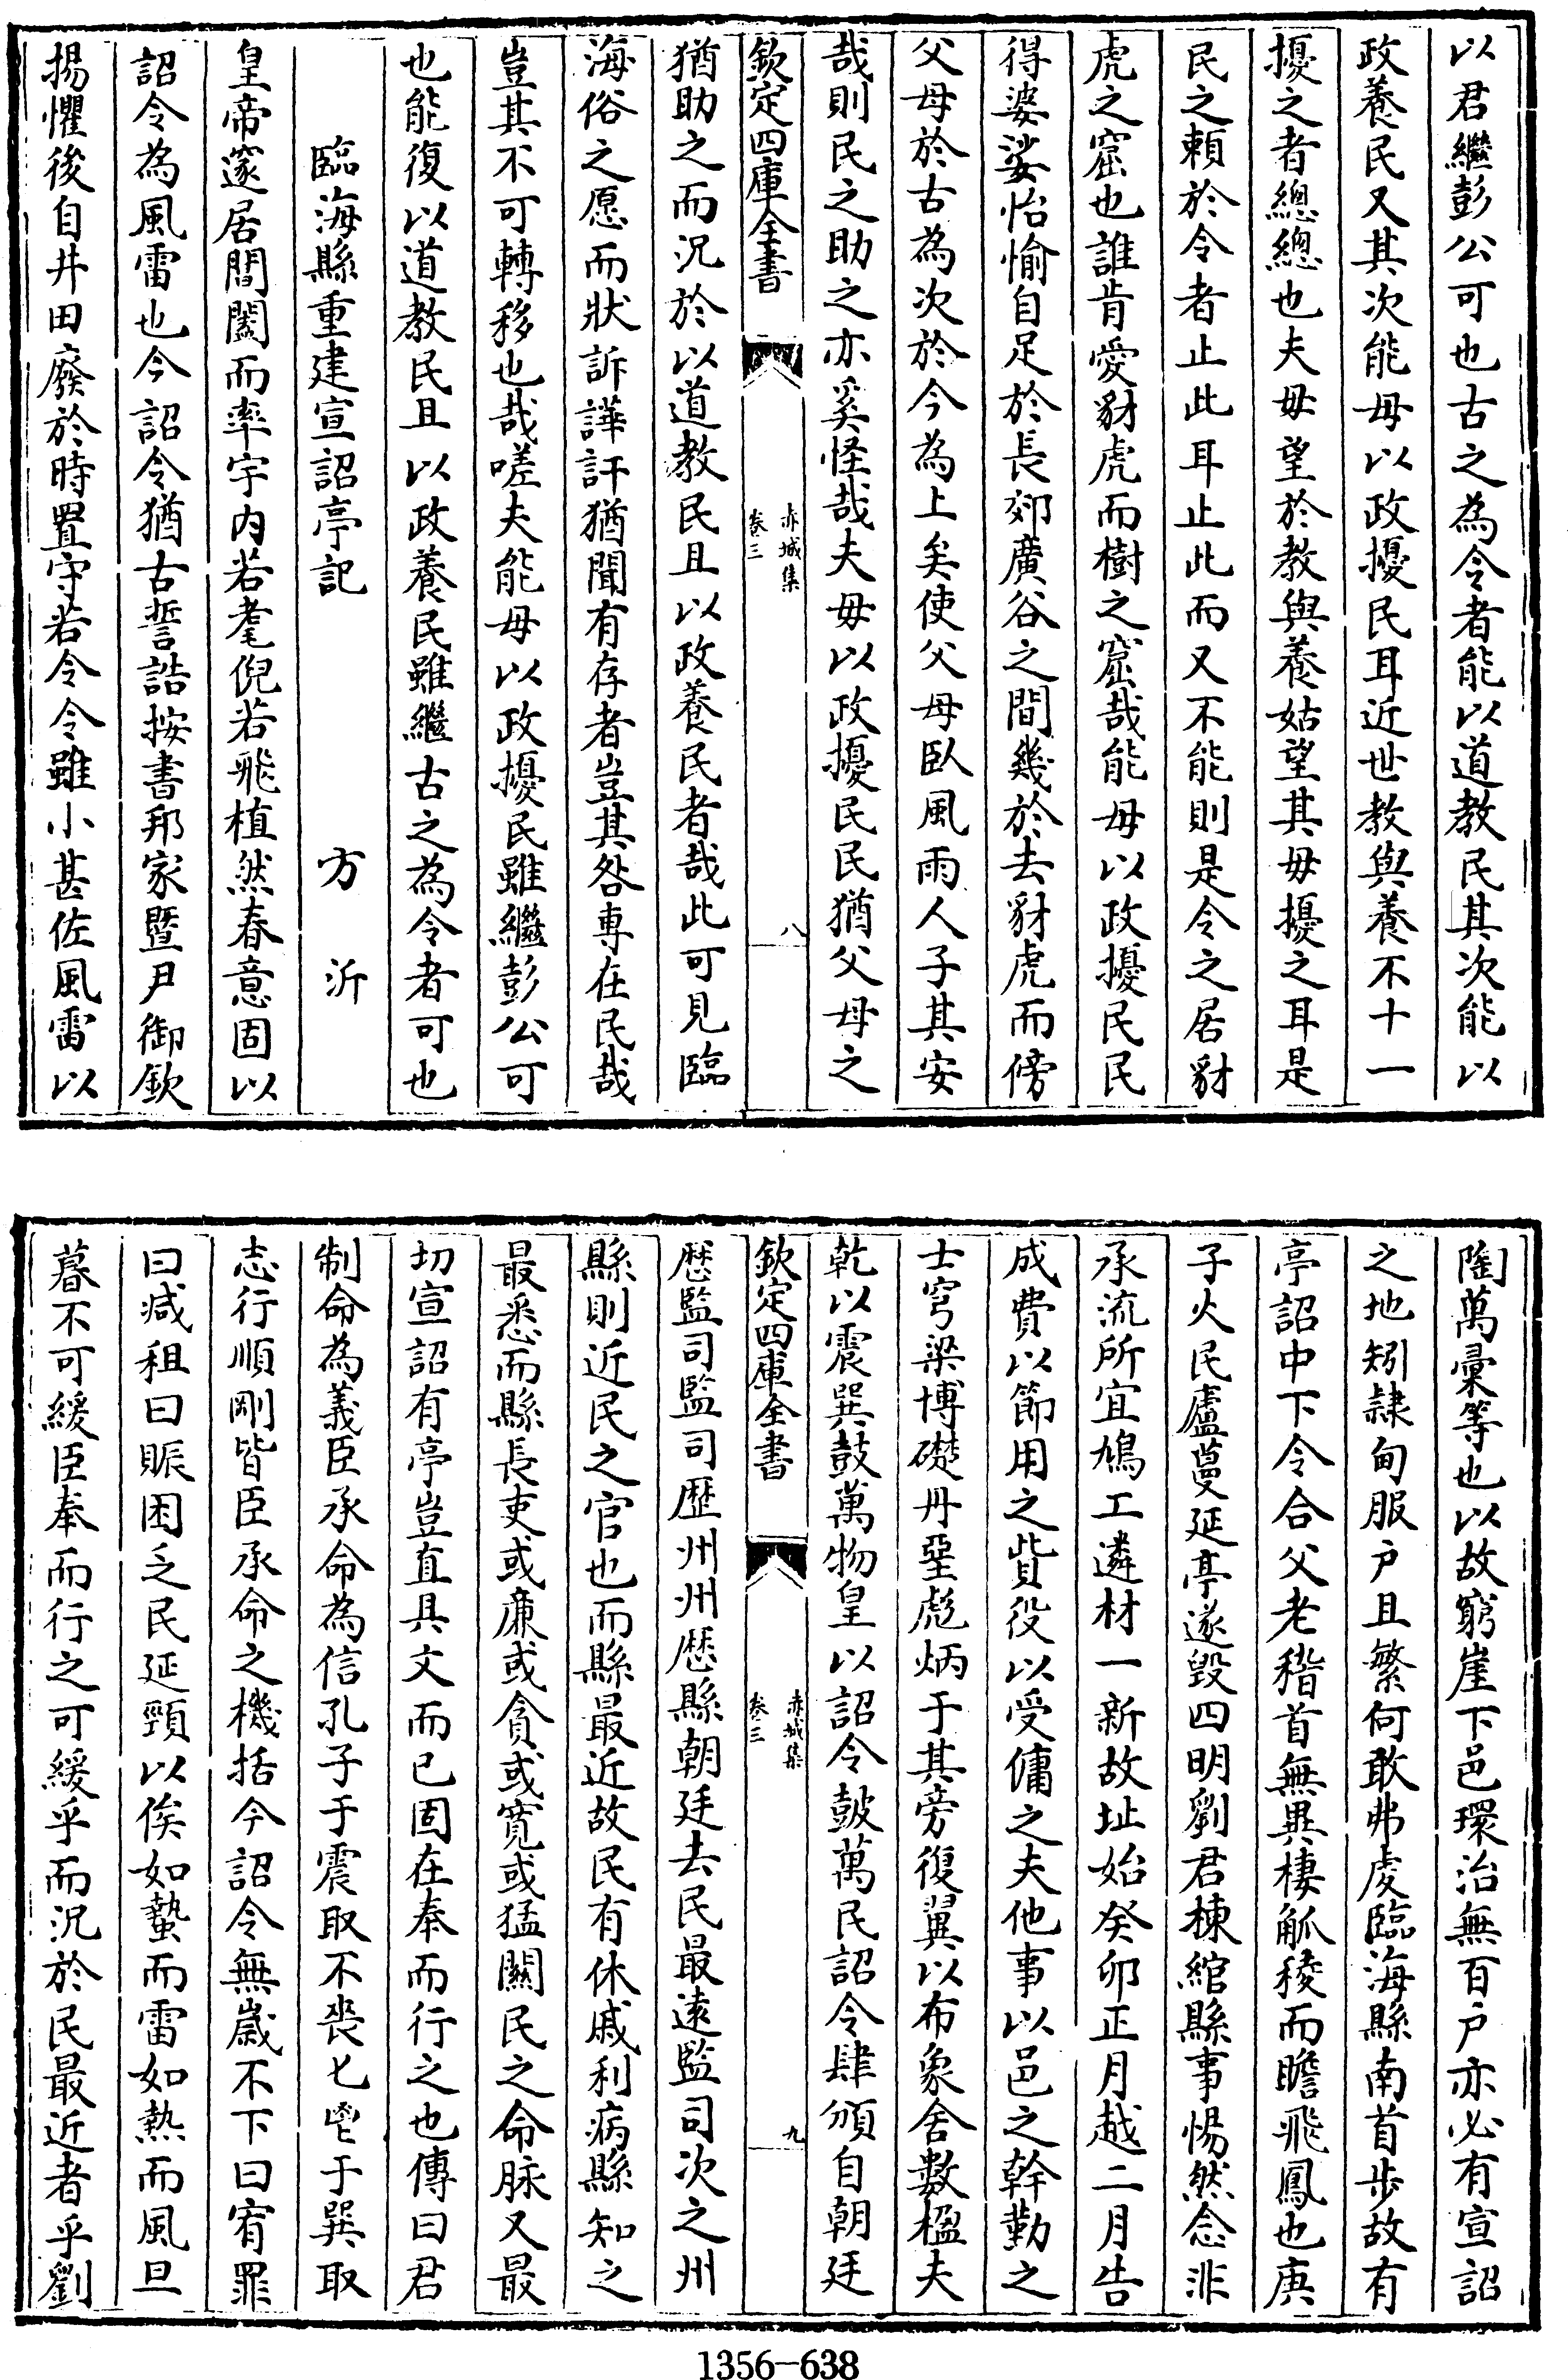 以君繼彭公可也古之為令者能以道教民其次能以
政養民又其次能毋以政擾民耳近世教與養不十一
擾之者總總也夫毋望於教與養姑望其毋擾之耳是
民之賴於令者止此耳止此而又不能則是令之居豺
虎之窟也誰肯愛豺虎而樹之窟哉能毋以政擾民民
得婆娑怡愉自足於長郊廣谷之間幾於去豺虎而傍
父母於古為次於今為上矣使父母臥風雨人子其安
哉則民之助之亦奚怪哉夫毋以政擾民民猶父母之
欽定四庫全書
赤城集
卷三
八
猶助之而況於以道教民且以政養民者哉此可見臨
海俗之愿而狀訴譁訐猶聞有存者豈其咎專在民哉
豈其不可轉移也哉嗟夫能毋以政擾民雖繼彭公可
也能復以道教民且以政養民雖繼古之為令者可也
臨海縣重建宣詔亭記
方沂
皇帝邃居閶闔而率宇內若耄倪若飛植然春意固以
詔令為風雷也今詔令猶古誓誥按書邦家暨尹御欽
揚懼後自井田廢於時置守若令令雖小甚佐風雷以
陶萬彙等也以故窮崖下邑環治無百户亦必有宣詔
之地矧隷甸服户且繁何敢弗虔臨海縣南首步故有
亭詔中下令合父老稽首無異棲觚稜而瞻飛鳳也庚
子火民廬蔓延亭遂毀四明劉君棟綰縣事惕然念非
承流所宜鳩工遴材一新故址始癸卯正月越二月告
成費以節用之貲役以受傭之夫他事以邑之幹勤之
士穹梁博礎丹堊彪炳于其旁復翼以布象舍數楹夫
乾以震巽鼓萬物皇以詔令鼓萬民詔令肆頒自朝廷
欽定四庫全書
赤城集
卷三
九
歷監司監司歷州州歷縣朝廷去民最遠監司次之州
縣則近民之官也而縣最近故民有休戚利病縣知之
最悉而縣長吏或廉或貪或寬或猛關民之命脉又最
切宣詔有亭豈直具文而已固在奉而行之也傳曰君
制命為義臣承命為信孔子于震取不喪匕鬯于巽取
志行順剛皆臣承命之機括今詔令無歲不下曰宥罪
曰減租曰賑困乏民延頸以俟如蟄而雷如熱而風旦
暮不可緩臣奉而行之可緩乎而況於民最近者乎劉
1356-638